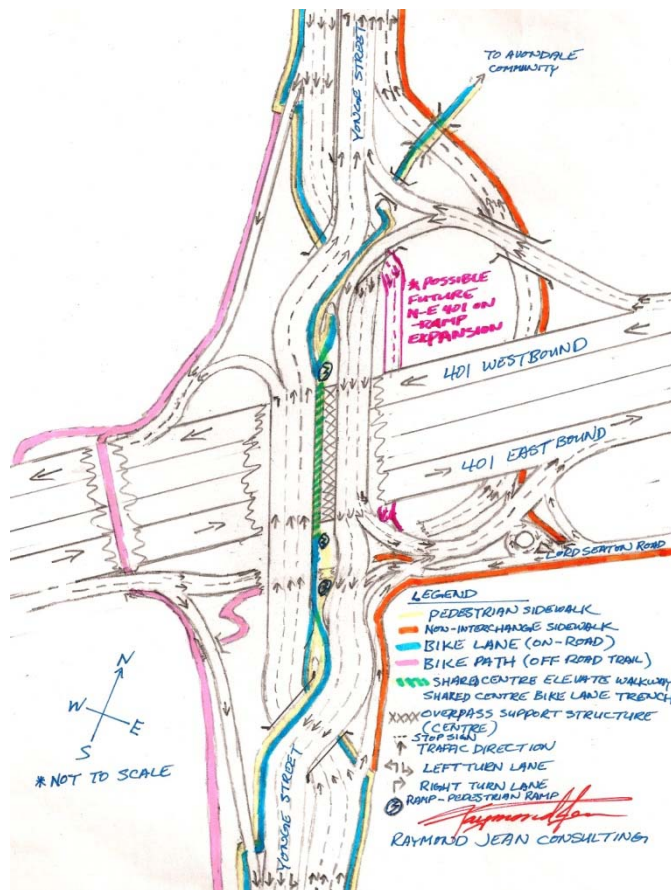 YONGE STREET
YONGE STREET
TO AVONDALE
COMMUNITY
* POSSIBLE
FUTURE
N-E 401 ON
-RAMP
EXPANSION
401 WESTBOUND
401 EAST BOUND
LORD SEATON ROAD
LEGEND
PEDESTRIAN SIDEWALK
NON-INTERCHANGE SIDEWALK
BIKE LANE (ON-ROAD)
BIKE PATH (OFF ROAD TRAIL)
SHARED CENTRE ELEVATE WALKWAY
SHARED CENTRE BIKE LANE TRENCH
OVERPASS SUPPORT STRUCTURE
(CENTRE)
STOP SIGN
TRAFFIC DIRECTION
LEFT TURN LANE
RIGHT TURN LANE
RAMP-PEDESTRIAN RAMP
N
W
E
S
* NOT TO SCALE
YONGE STREET
RAYMOND JEAN CONSULTING